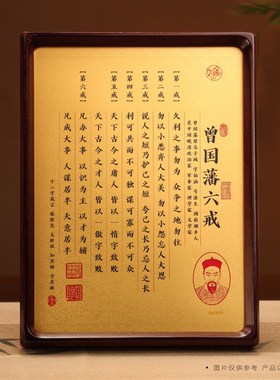 曾国藩六戒
【第一戒】
久利之事勿为 众争之地勿往
【第二戒】
勿以小恶弃人大美 勿以小怨忘人大恩
【第三戒】
说人之短乃护己之短 夸己之长乃忌人之长
【第四戒】
利可共而不可独 谋可寡而不可众
【第五戒】
天下古今之庸人 皆以一惰字致败
天下古今之才人 皆以一傲字致败
【第六戒】
凡办大事 以识为主 以才为辅
凡成大事 人谋居半 天意居半
图片仅供参考 产品以